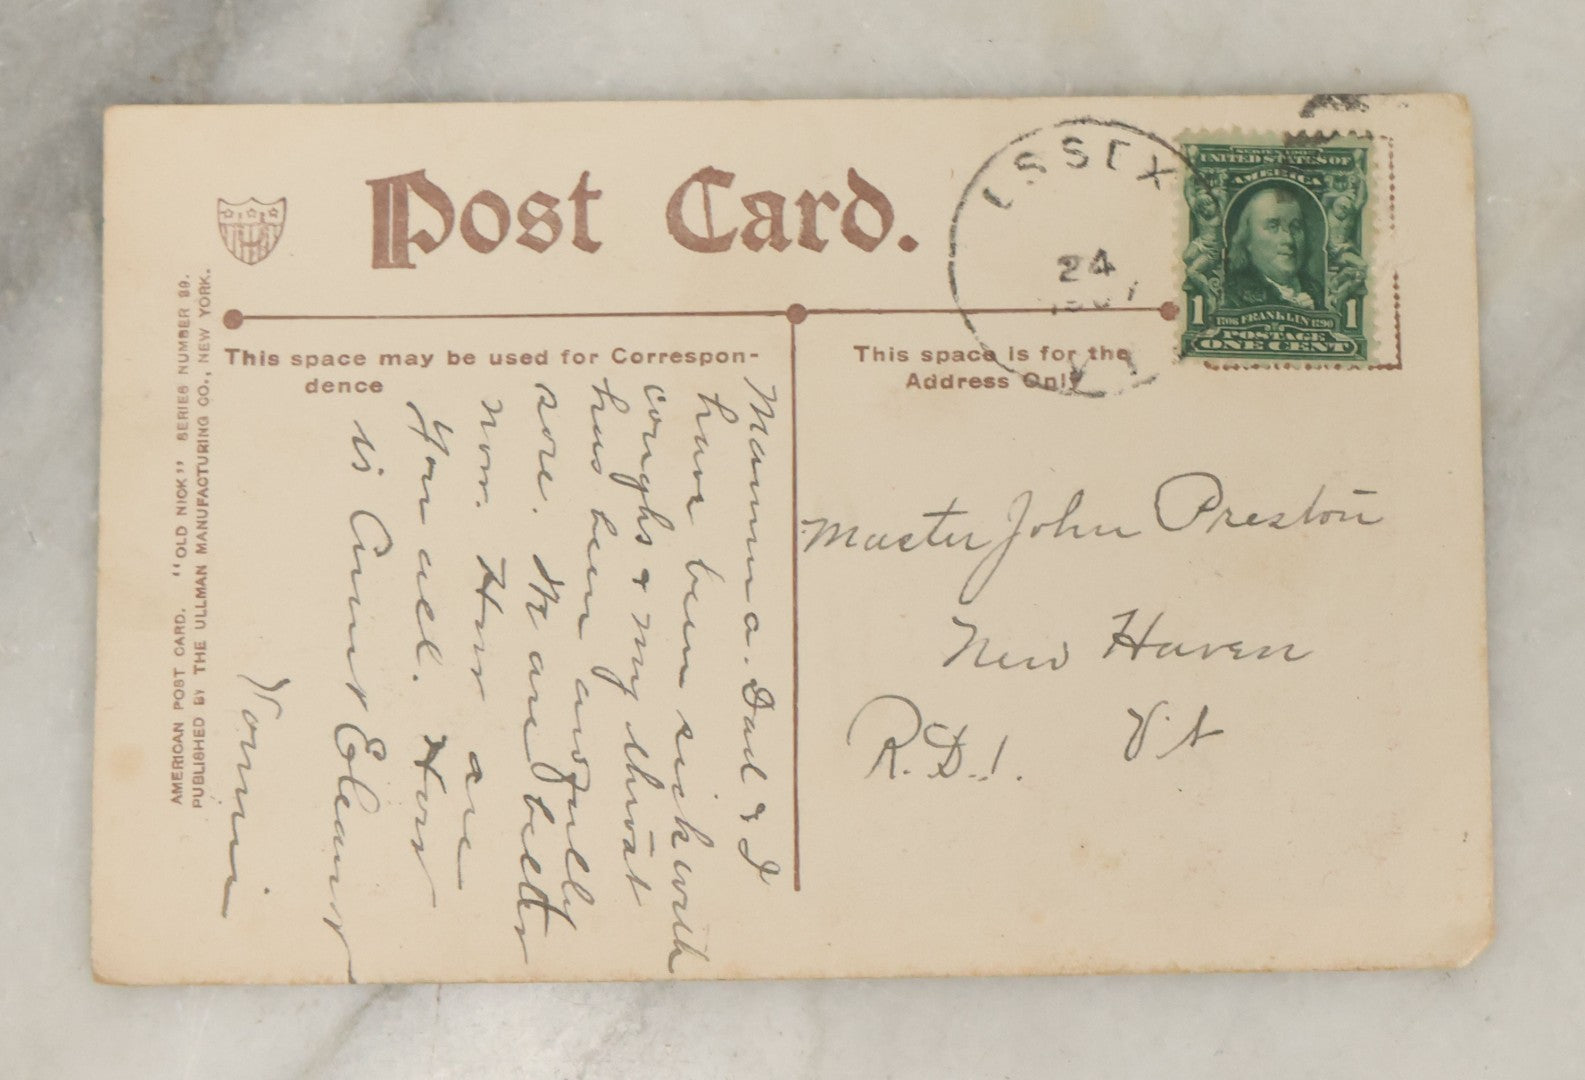 Post Card.
This space may be used for Correspon-
dence
This space is for the
Address Only
AMERICAN POST CARD. "OLD NICK" SERIES NUMBER 99.
PUBLISHED BY THE ULLMAN MANUFACTURING CO., NEW YORK.
ESSEX
24
1907
SERIES 1902
UNITED STATES OF
AMERICA
1 1706 FRANKLIN 1790 1
POSTAGE
ONE CENT
Mamma. Dad & I
have been sick with
coughs & my throat
has been awfully
sore. We are better
now. How are
you all. How
is Aunt Eleanor
Master John Preston
New Haven
R.D.1. Vt